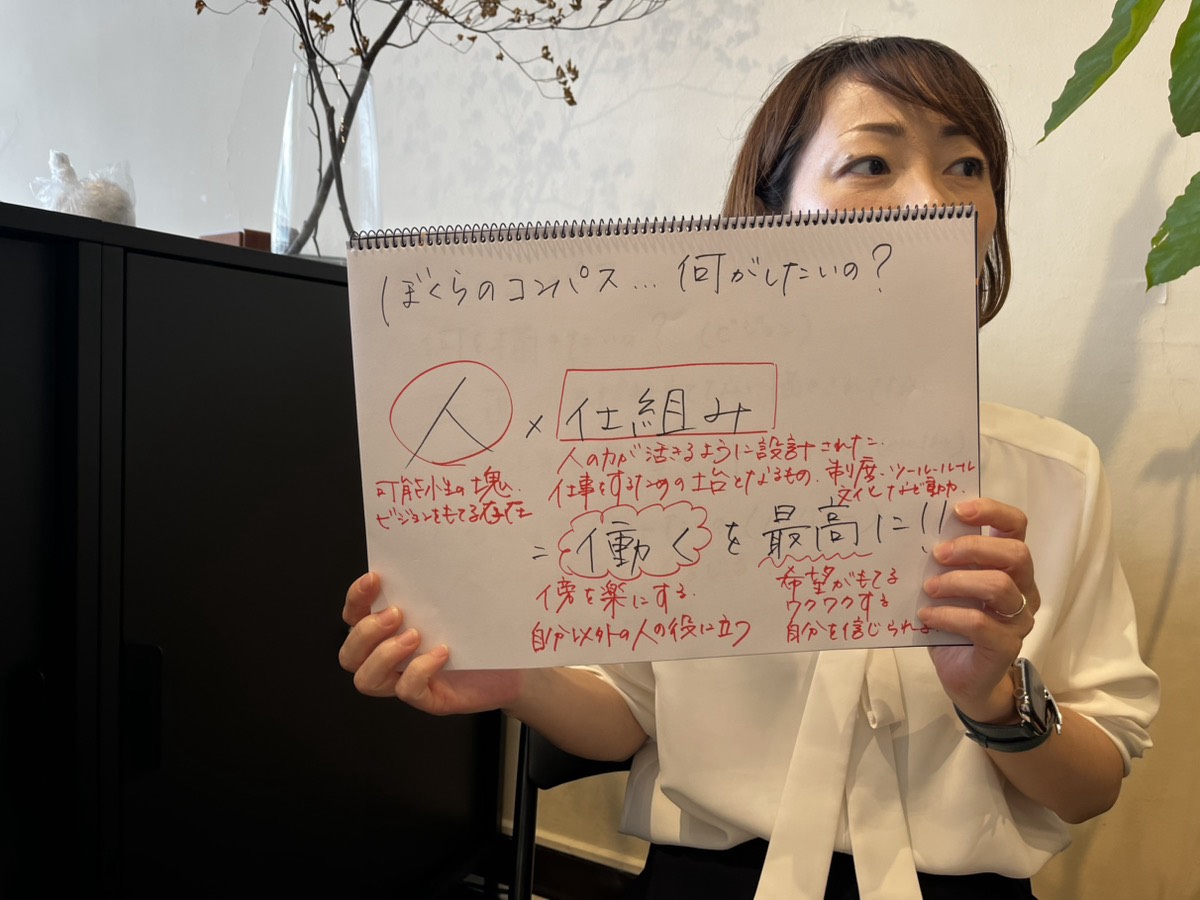 ぼくらのコンパス… 何がしたいの?
人 × 仕組み
可能性の塊、
ビジョンをもてる存在
人の力が活きるように設計された、
仕事をするための土台となるもの。制度、ツール・ルール
文化など動力、
= 働く を 最高 に!!
傍を楽にする。
自分以外の人の役に立つ
希望がもてる
ワクワクする
自分を信じられる